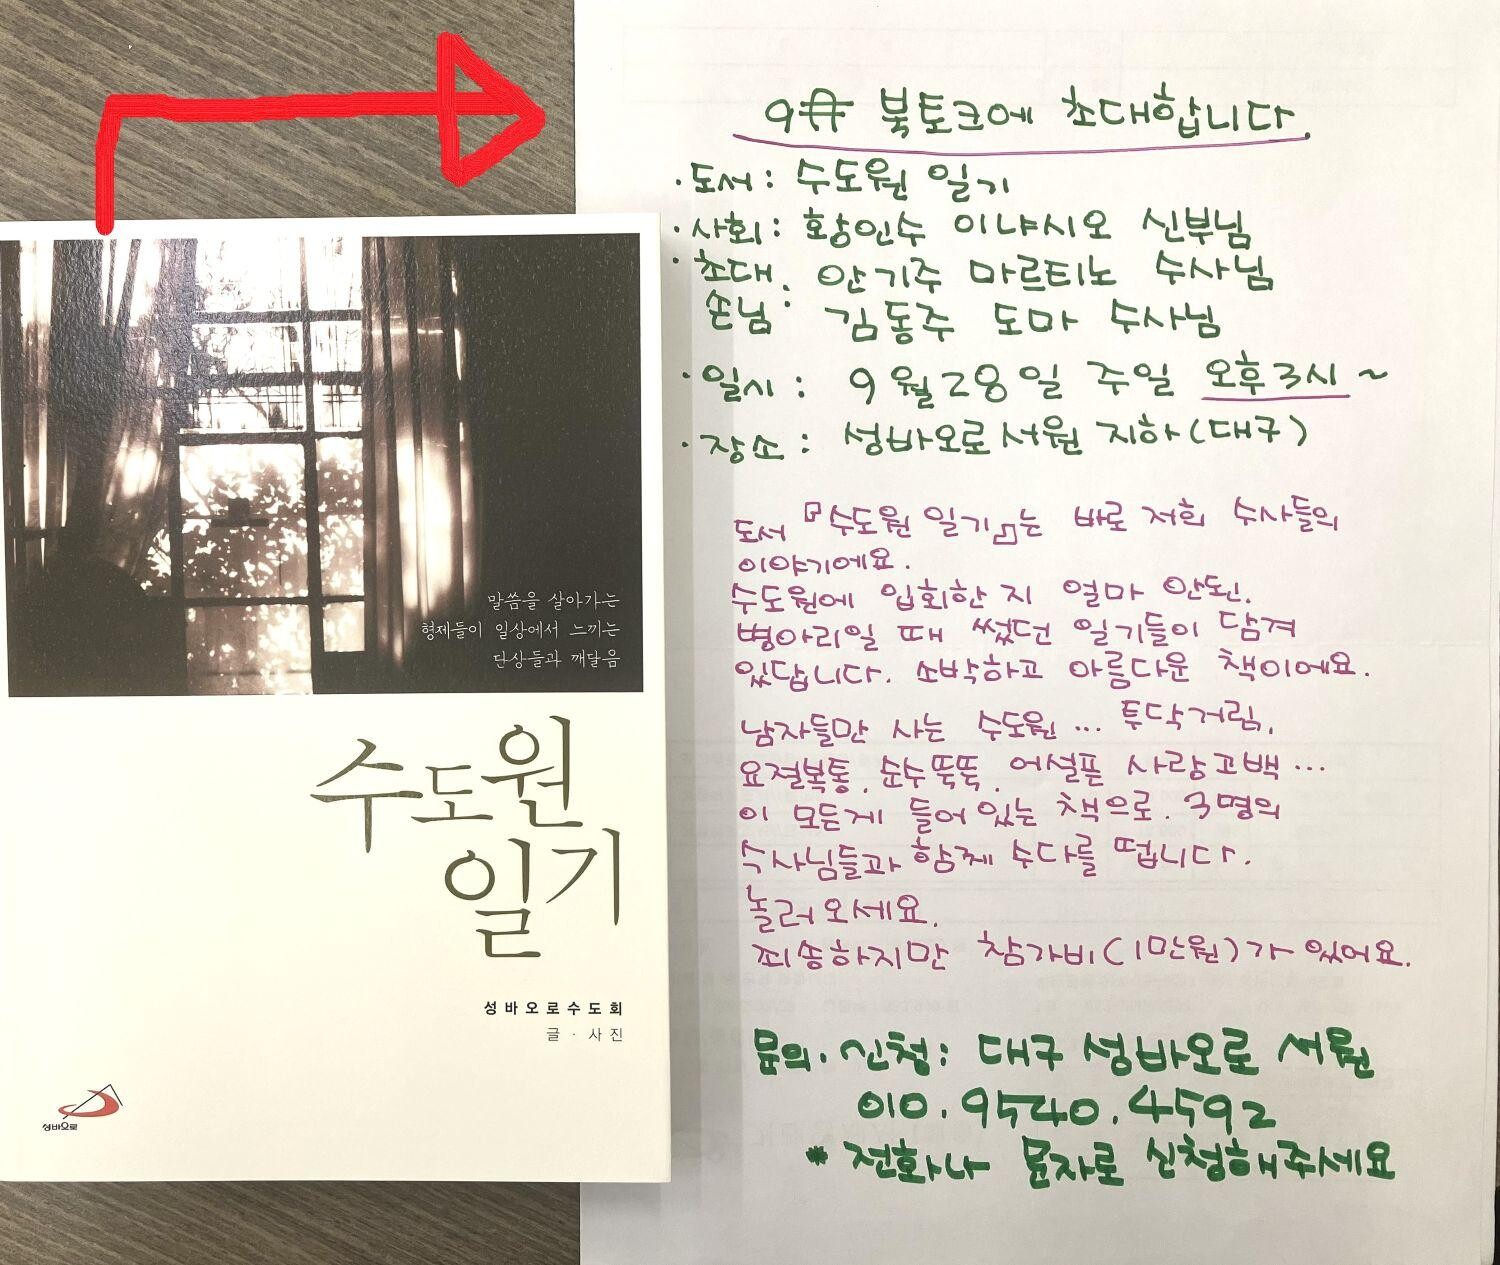 말씀을 살아가는
형제들이 일상에서 느끼는
단상들과 깨달음
수도원
일기
성바오로수도회
글 · 사진
성바오로
9月 북토크에 초대합니다.
· 도서 : 수도원 일기
· 사회 : 황인수 이냐시오 신부님
· 초대손님 : 안기주 마르티노 수사님
김동주 도마 수사님
· 일시 : 9월28일 주일 오후3시 ~
· 장소 : 성바오로서원 지하(대구)
도서 『수도원 일기』는 바로 저희 수사들의
이야기에요.
수도원에 입회한 지 얼마 안된.
병아리일 때 썼던 일기들이 담겨
있답니다. 소박하고 아름다운 책이에요.
남자들만 사는 수도원 ... 투닥거림,
요절복통, 순수뚝뚝, 어설픈 사랑고백 ...
이 모든게 들어있는 책으로. 3명의
수사님들과 함께 수다를 떱니다.
놀러오세요.
죄송하지만 참가비(1만원)가 있어요.
문의 . 신청 : 대구 성바오로 서원
010.9540.4592
* 전화나 문자로 신청해주세요